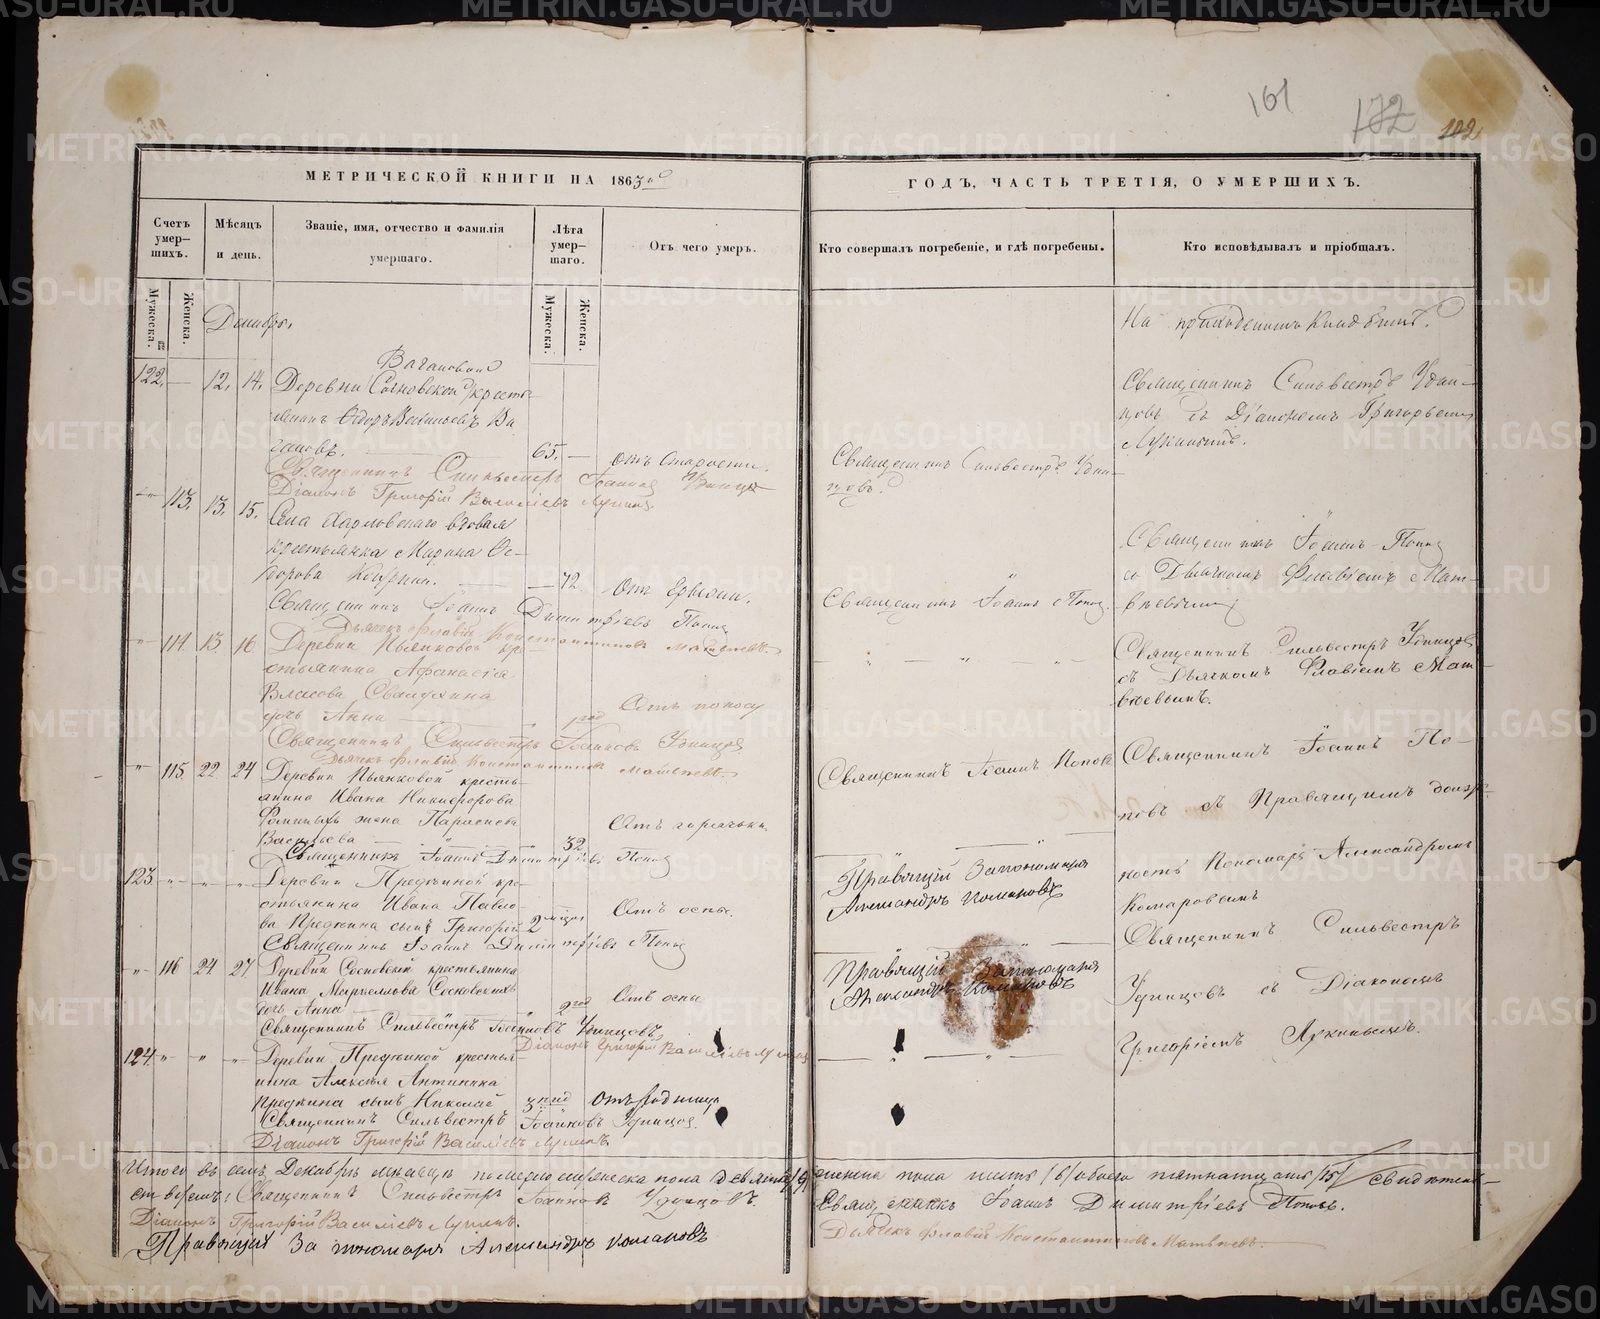 161
172
102
МЕТРИЧЕСКОЙ КНИГИ НА 1863й
ГОДЪ, ЧАСТЬ ТРЕТІЯ, О УМЕРШИХЪ.
Счетъ умер-шихъ.
Мѣсяцъ и день.
Званіе, имя, отчество и фамилія умершаго.
Лѣта умер-шаго.
Отъ чего умеръ.
Кто совершалъ погребеніе, и гдѣ погребены.
Кто исповѣдывалъ и пріобщалъ.
Мужеска.
Женска.
Мужеска.
Женска.
Декабрь.
На приходскомъ кладбищѣ.
122. — 12. 14.
Деревни Сосновской кресть-
янинъ Ѳедоръ Васильевъ Ва
гановъ. 65. — Отъ старости.
Священникъ Сильвестръ Удин-
цовъ.
Священникъ Сильвестръ Удин-
цовъ съ Діакономъ Григорьемъ
Лукинымъ.
Священникъ Сильвестръ Іоанновъ Удинцовъ
Діаконъ Григорій Васильевъ Лукинъ.
113. 13. 15.
Села Харловскаго вдовая
крестьянка Марина Ѳе-
дорова — 72. Отъ грыжи.
Священникъ Іоаннъ Поповъ.
Священникъ Іоаннъ Поповъ
съ Дьячкомъ Флавіемъ Мат-
вѣевымъ
Священникъ Іоаннъ Димитріевъ Поповъ
Дьячекъ Флавій Константиновъ Матвѣевъ.
114 13 16
Деревни Пьянковой кре-
стьянина Афанасія
Власова
дочь Анна — 1 год Отъ поносу
Священникъ Сильвестръ Удинцовъ
съ Дьячкомъ Флавіемъ Мат-
вѣевымъ.
Священникъ Сильвестръ Іоанновъ Удинцовъ
Дьячекъ Флавій Константиновъ Матвѣевъ.
115 22 24
Деревни Пьянковой кресть-
янина Ивана Никифорова
Фоминыхъ жена Параскева
Васильева — 32 Отъ горячки.
Священникъ Іоаннъ Поповъ
Священникъ Іоаннъ По-
повъ съ Правящимъ долж-
ность Пономаря Александромъ
Комаровымъ
Священникъ Іоаннъ Димитріевъ Поповъ
Правящій За пономаря
Александръ Комаровъ
123
Деревни Предкиной кре-
стьянина Ивана Павло-
ва Предкина сынъ Григорій 2 мѣсяц. Отъ оспы.
Священникъ Іоаннъ Димитріевъ Поповъ
Правящій За пономаря
Александръ Комаровъ
116 24 27
Деревни Сосновской крестьянина
Ивана Сосновскихъ
дочь Анна — 2 год Отъ оспы
Священникъ Сильвестръ
Удинцовъ съ Діакономъ
Григоріемъ Лукинымъ.
Священникъ Сильвестръ Іоанновъ Удинцовъ.
Діаконъ Григорій Васильевъ Лукинъ
124
Деревни Предкиной крестья-
нина Алексѣя Антипина
Предкина сынъ Николай 3 год Отъ родимца
Священникъ Сильвестръ Іоанновъ Удинцовъ.
Діаконъ Григорій Васильевъ Лукинъ.
Итого въ семъ Декабрѣ мѣсяцѣ померло мужеска пола девять /9/ женска пола шесть /6/ обоего пятнадцать /15/ свидѣтель-
ствуемъ: Священникъ Сильвестръ Іоанновъ Удинцовъ.
Священникъ Іоаннъ Димитріевъ Поповъ.
Діаконъ Григорій Васильевъ Лукинъ.
Дьячекъ Флавій Константиновъ Матвѣевъ.
Правящій За пономаря Александръ Комаровъ
METRIKI.GASO-URAL.RU